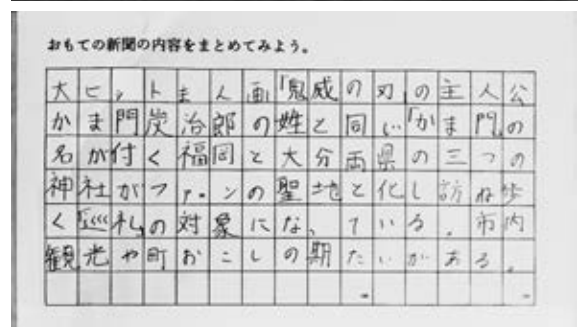 おもての新聞の内容をまとめてみよう。
大ヒットまん画「鬼威の刃」の主人公
かま門炭治郎の姓と同じ「かま門」の
名が付く福岡と大分両県の三つの
神社がファンの聖地と化し訪ね歩
く巡礼の対象になっている。市内
観光や町おこしの期たいがある。